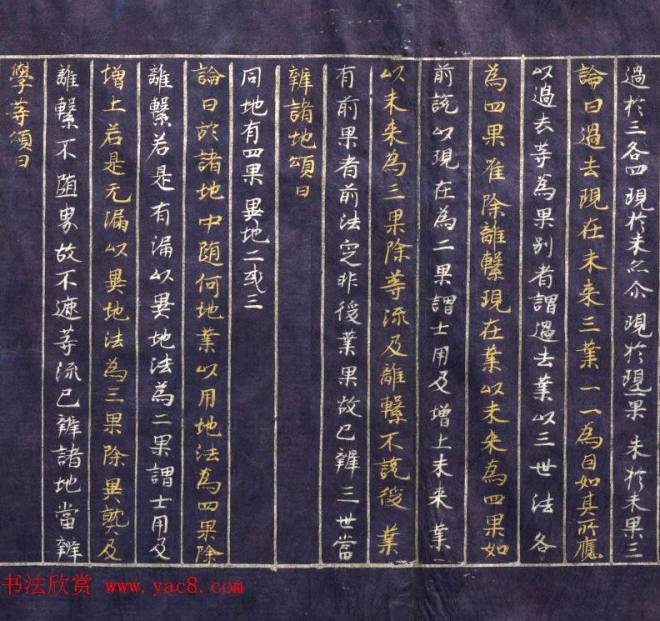 過於三各四現於未亦尒現於現二果未於未果三
論曰過去現在未来三業一一為因如其所應
以過去等為果別者謂過去業以三世法各
為四果唯除離繫現在業以未来為四果如
前說以現在為二果謂士用及增上未来業
以未来為三果除等流及離繫不說後業
有前果者前法定非後業果故已辯三世當
辯諸地頌曰
同地有四果異地二或三
論曰於諸地中随何地業以同地法為四果除
離繫若是有漏以異地法為二果謂士用及
增上若是无漏以異地法為三果除異熟及
離繫不堕界故不遮等流已辯諸地當辯
學等頌曰
书法欣赏 www.yac8.com